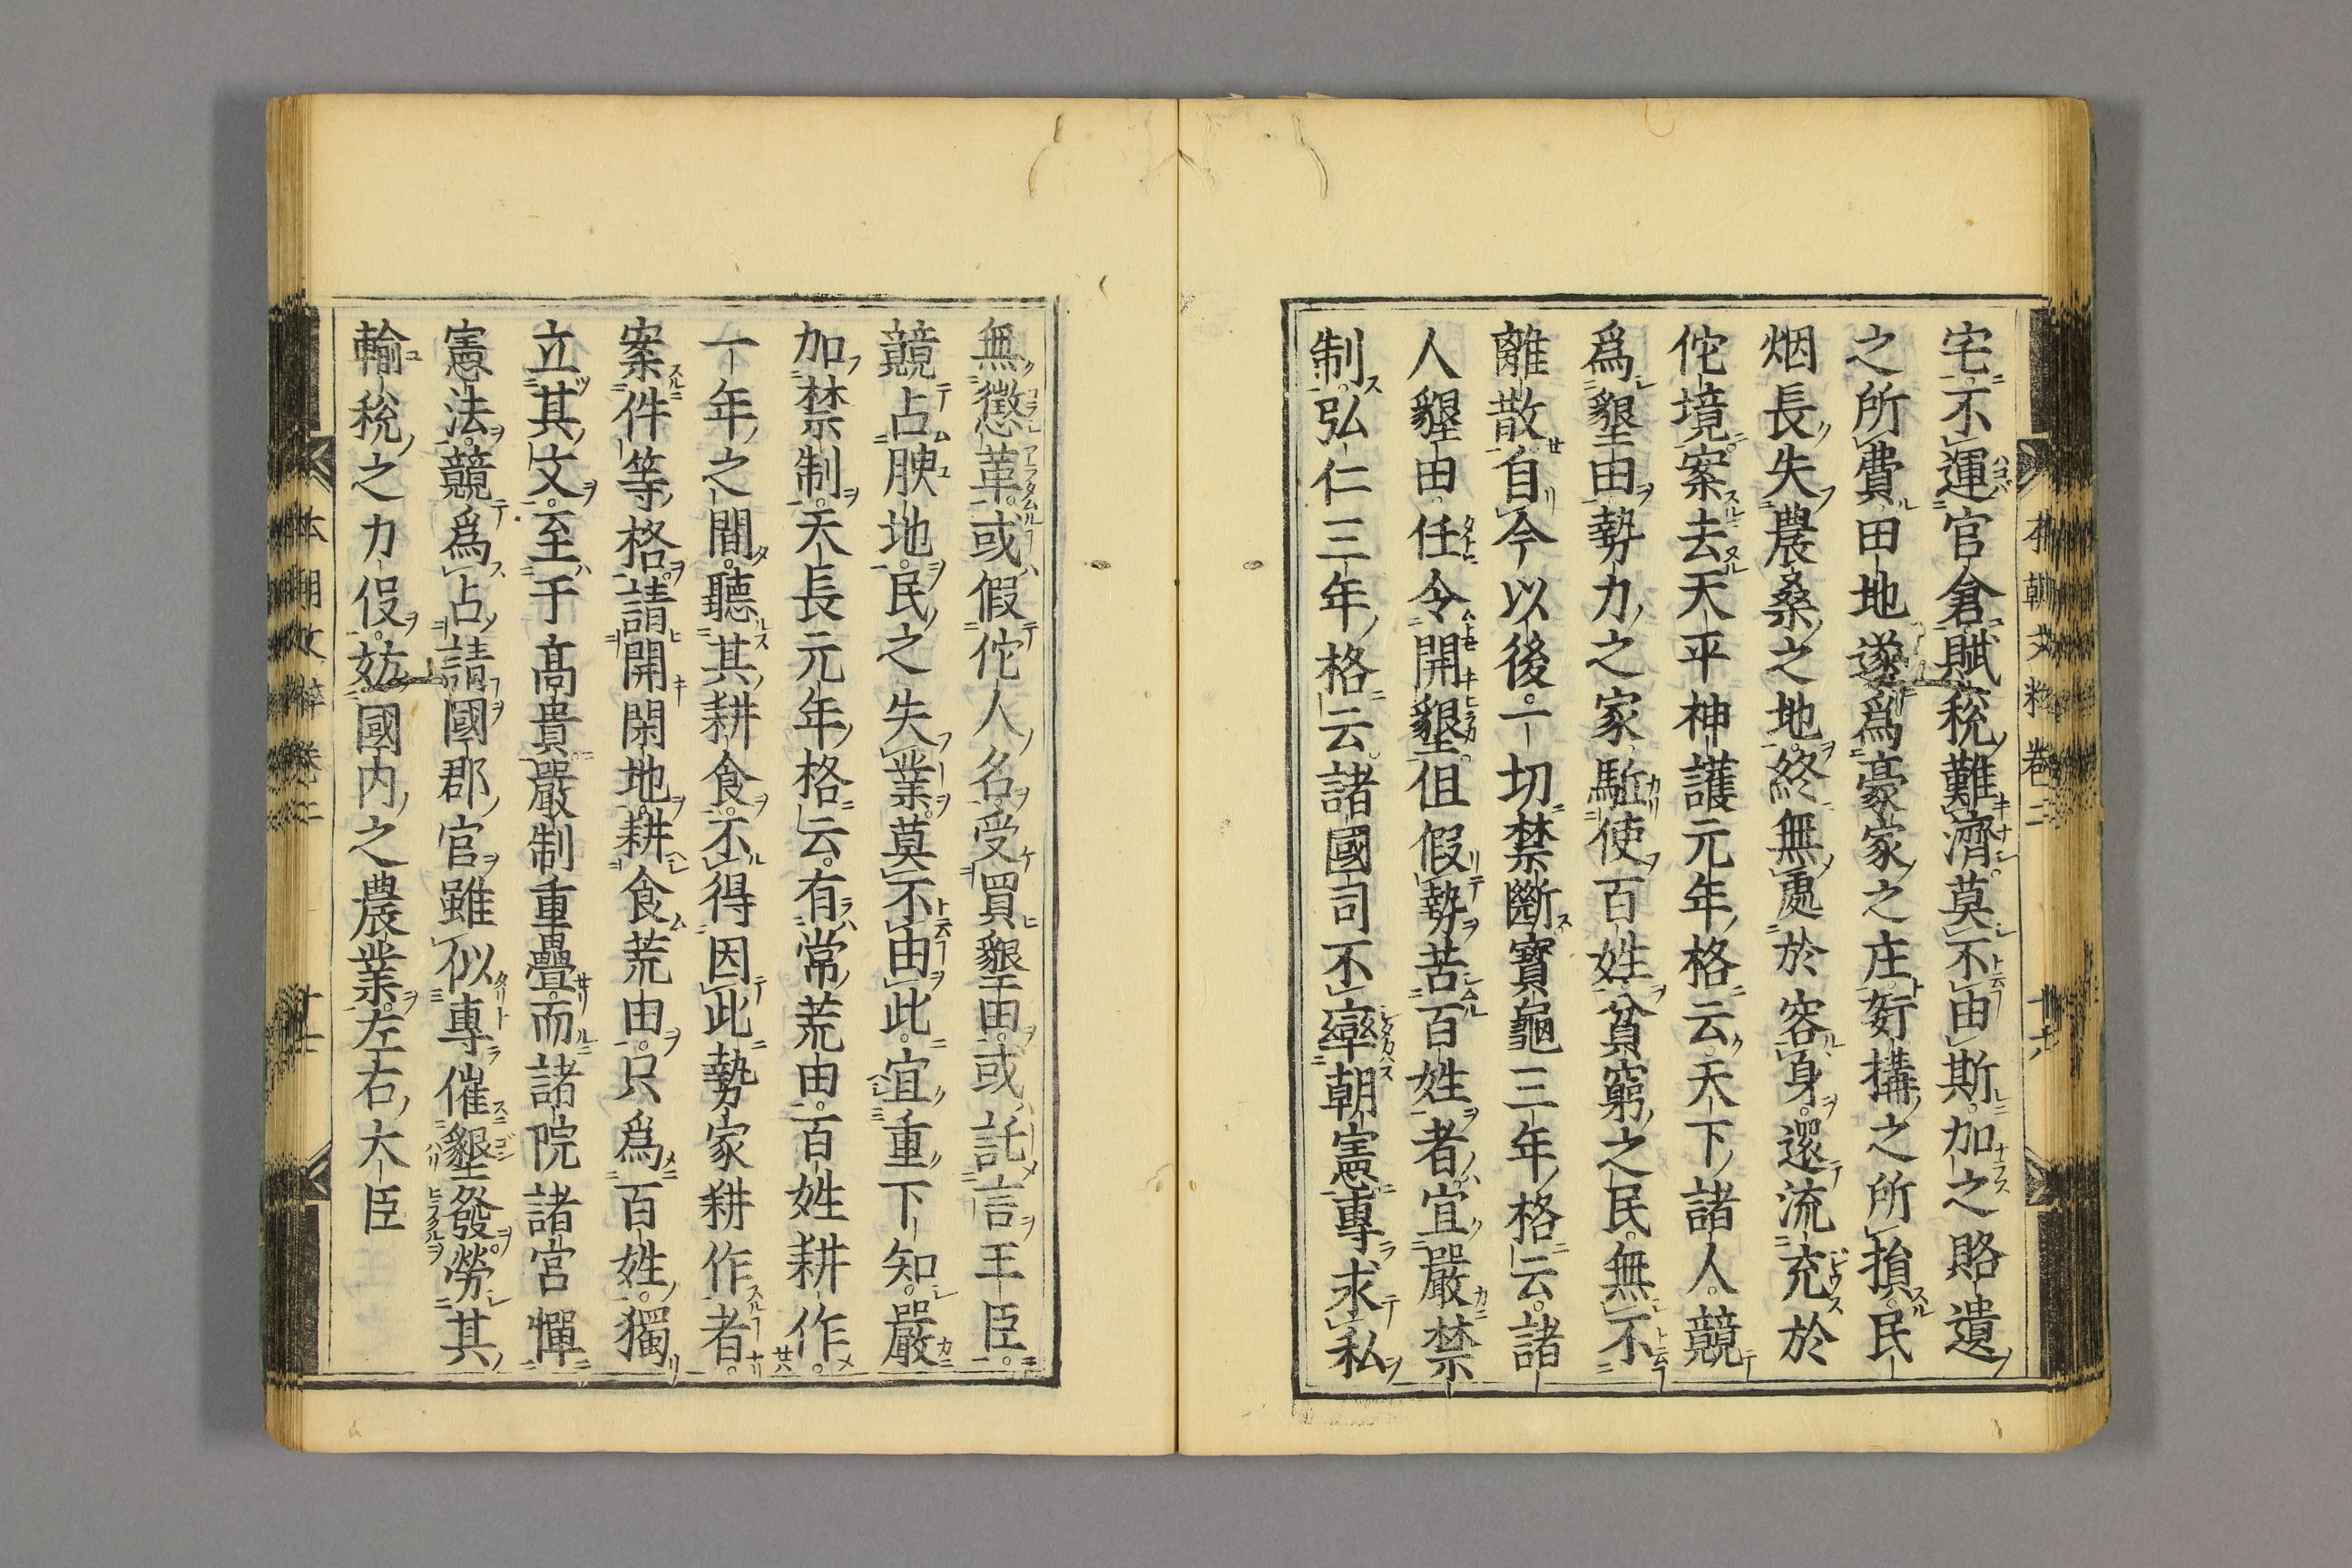 宅不運官倉賦税難濟莫不由斯加之賂遺
之所費田地遂爲豪家之庄姧搆之所損民
烟長失農桑之地終無處於容身還流㐬於
佗境案去天平神護元年格云天下諸人競
爲墾田勢力之家駈使百姓貧窮之民無不
離散自今以後一切禁斷寶龜三年格云諸
人墾田任令開墾但假勢苦百姓者宜嚴禁
制弘仁三年格云諸國司不率朝憲專求私
無懲革或假佗人名受買墾田或託言王臣
競占腴地民之失業莫不由此宜重下知嚴
加禁制天長元年格云有常荒田百姓耕作
一年之間聽其耕食不得因此勢家耕作者
案件等格請開閑地耕食荒田只爲百姓獨
立其文至于高貴嚴制重疊而諸院諸宮憚
憲法競爲占請國郡官雖似專催墾發勞其
輸税之力役妨國内之農業左右大臣